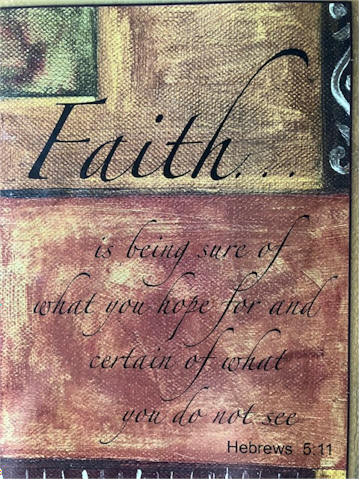 Faith...
is being sure of
what you hope for and
certain of what
you do not see
Hebrews 5:11